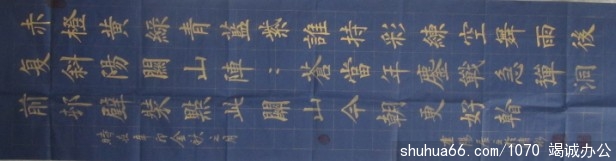 赤橙黃綠青藍紫誰持彩練空舞雨後
复斜陽關山陣：蒼當年鏖戰急彈洞
前邨壁裝點此關山今朝更好
時在辛卯金秋之月
shuhua66.com/1070 竭诚办公